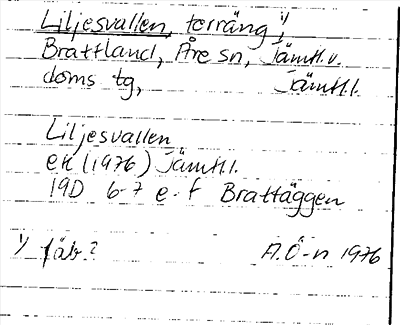 Liljesvallen, terräng, 1/
Brattland, Åre sn, Jämtl. v.
doms tg, Jämtl.l.
Liljesvallen
ek (1976) Jämtl.l.
19D 6-7 e-f Brattäggen
1/ fäb.? A.Ö-n 1976